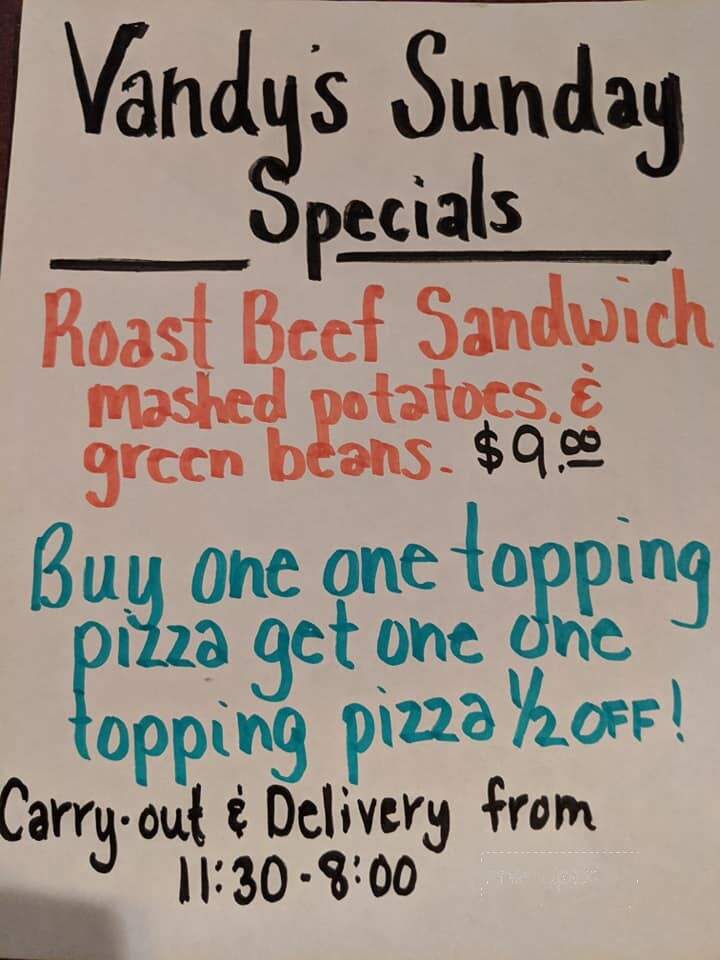 Vandy's Sunday
Specials
Roast Beef Sandwich
mashed potatoes. &
green beans. $9.00
Buy one one topping
pizza get one one
topping pizza 1/2 OFF!
Carry-out & Delivery from
11:30-8:00